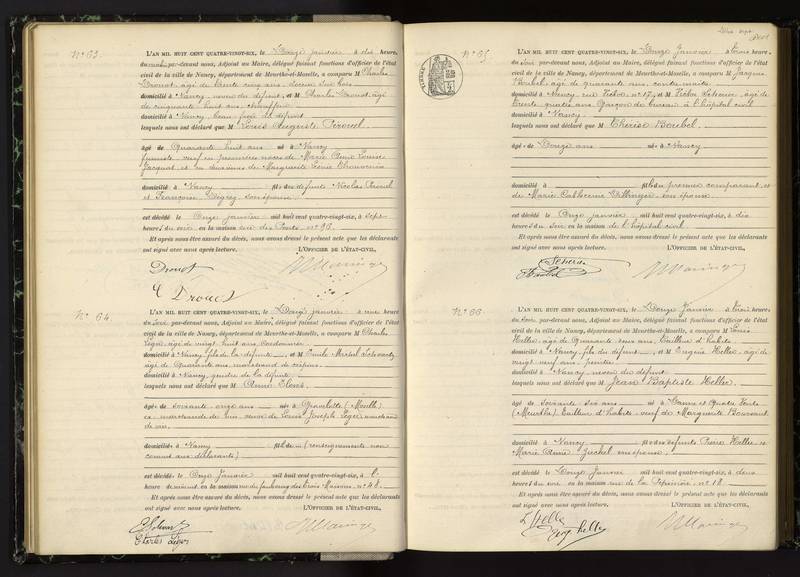 N° 63.
L'AN MIL HUIT CENT QUATRE-VINGT-SIX, le Douze janvier à dix heures
du matin par-devant nous, Adjoint au Maire, délégué faisant fonctions d'officier de l'état
civil de la ville de Nancy, département de Meurthe-et-Moselle, a comparu M Charles
Drouot, âgé de trente cinq ans
domicilié à Nancy, du défunt, et M Charles Drouot, âgé
de cinquante huit ans, chauffeur
domicilié à Nancy, beau-frère du défunt
lesquels nous ont déclaré que M Louis Auguste
âgé de Quarante huit ans né à Nancy
fumiste, veuf en premières noces de Marie Anne Louise
Jacquot et en secondes de Marguerite
domicilié à Nancy fils des défunts Nicolas
et Françoise son épouse
est décédé le Onze janvier mil huit cent quatre-vingt-six, à sept
heures du soir en la maison rue des Ponts n° 96
Et après nous être assuré du décès, nous avons dressé le présent acte que les déclarants
ont signé avec nous après lecture. L'OFFICIER DE L'ÉTAT-CIVIL,
Drouot
C Drouot
N° 64.
L'AN MIL HUIT CENT QUATRE-VINGT-SIX, le Douze janvier à une heure
du soir par-devant nous, Adjoint au Maire, délégué faisant fonctions d'officier de l'état
civil de la ville de Nancy, département de Meurthe-et-Moselle, a comparu M Charles
Léger, âgé de vingt huit ans, cordonnier
domicilié à Nancy, fils de la défunte, et M Émile Schwartz
âgé de Quarante ans, marchand de
domicilié à Nancy, gendre de la défunte
lesquels nous ont déclaré que M Anne
âgée de soixante onze ans née à Gravelotte (Moselle)
marchande de vin, veuve de Louis Joseph Léger, marchand
de vin
domiciliée à Nancy fille de (renseignements non
connus aux déclarants)
est décédée le Onze Janvier mil huit cent quatre-vingt-six, à
heures en la maison rue du faubourg des trois Maisons, n° 48
Et après nous être assuré du décès, nous avons dressé le présent acte que les déclarants
ont signé avec nous après lecture. L'OFFICIER DE L'ÉTAT-CIVIL,
Charles Léger
N° 65
L'AN MIL HUIT CENT QUATRE-VINGT-SIX, le Douze Janvier à trois heures
du soir par-devant nous, Adjoint au Maire, délégué faisant fonctions d'officier de l'état
civil de la ville de Nancy, département de Meurthe-et-Moselle, a comparu M Jacques
Boubel, âgé de quarante ans, contre-maître
domicilié à Nancy, rue n° 17, et M Victor âgé de
trente quatre ans, Garçon de bureau à l'hôpital civil
domicilié à Nancy
lesquels nous ont déclaré que M Thérèse Boubel
âgée de Douze ans née à Nancy
domiciliée à fille du premier comparant et
de Marie Catherine son épouse
est décédée le Onze janvier mil huit cent quatre-vingt-six, à dix
heures du soir en la maison de l'hôpital civil
Et après nous être assuré du décès, nous avons dressé le présent acte que les déclarants
ont signé avec nous après lecture. L'OFFICIER DE L'ÉTAT-CIVIL,
Boubel
N° 66
L'AN MIL HUIT CENT QUATRE-VINGT-SIX, le Douze Janvier à trois heures
du soir par-devant nous, Adjoint au Maire, délégué faisant fonctions d'officier de l'état
civil de la ville de Nancy, département de Meurthe-et-Moselle, a comparu M Louis
Heller, âgé de Quarante ans, Tailleur d'habits
domicilié à Nancy, fils du défunt, et M Eugène Heller, âgé de
vingt neuf ans, peintre
domicilié à Nancy, neveu du défunt
lesquels nous ont déclaré que M Jean Baptiste Heller
âgé de soixante six ans né à
(Meurthe), Tailleur d'habits, veuf de Marguerite
domicilié à Nancy fils des défunts Pierre Heller et
Marie Anne son épouse
est décédé le Douze Janvier mil huit cent quatre-vingt-six, à deux
heures du soir en la maison rue de la Pépinière, n° 18
Et après nous être assuré du décès, nous avons dressé le présent acte que les déclarants
ont signé avec nous après lecture. L'OFFICIER DE L'ÉTAT-CIVIL,
L Heller
Eug. heller